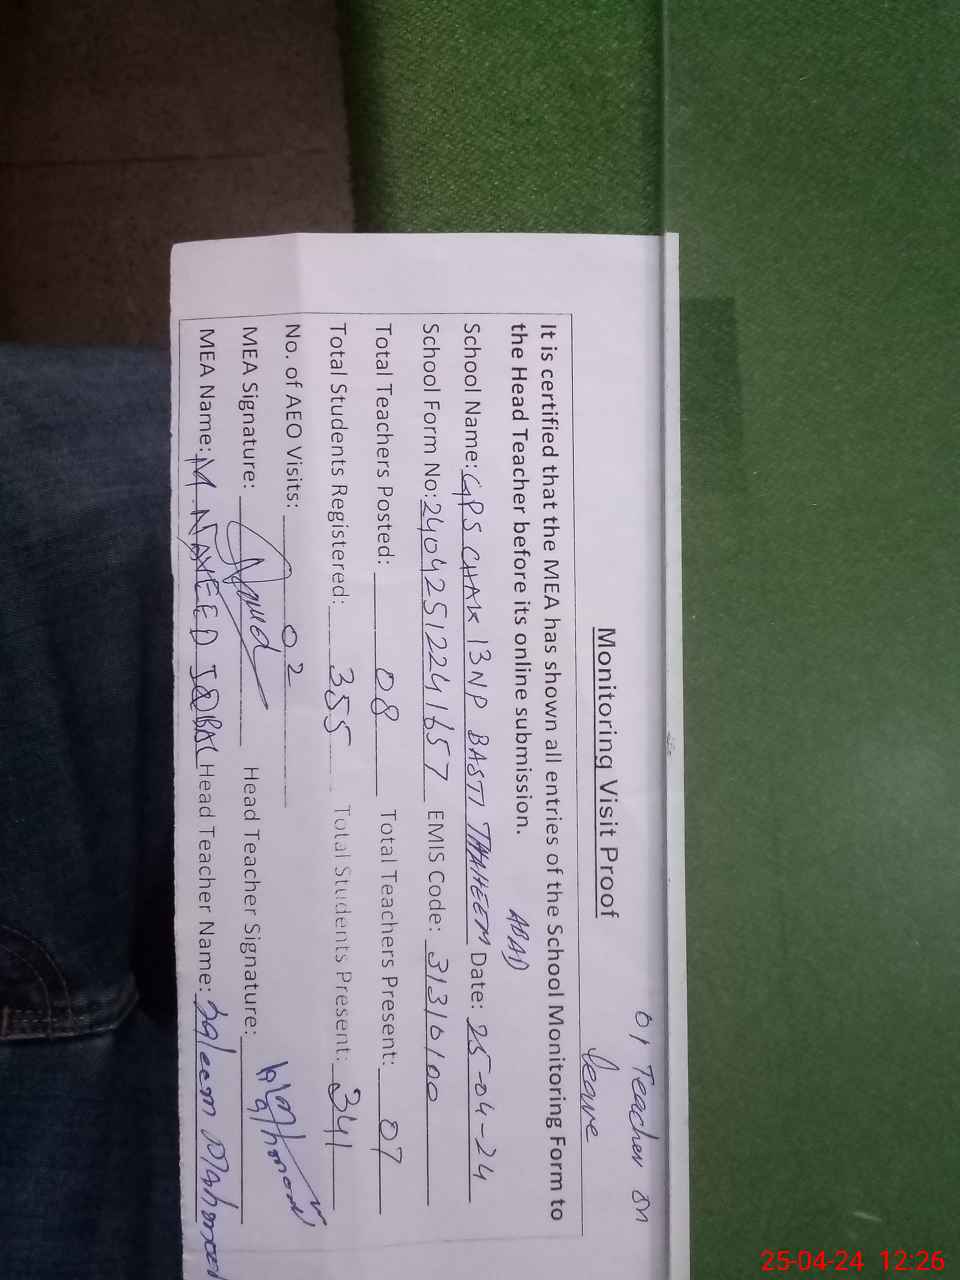 01 Teacher on
leave
Monitoring Visit Proof
It is certified that the MEA has shown all entries of the School Monitoring Form to
the Head Teacher before its online submission.
ABAD
School Name: GPS CHAK 13NP BASTI TAHHEEM Date: 25-04-24
School Form No: 24042512241657 EMIS Code: 31310100
Total Teachers Posted: 08 Total Teachers Present: 07
Total Students Registered: 355 Total Students Present: 341
No. of AEO Visits: 02
MEA Signature: Head Teacher Signature:
MEA Name: M. NAVEED IQBAL Head Teacher Name:
25-04-24 12:26